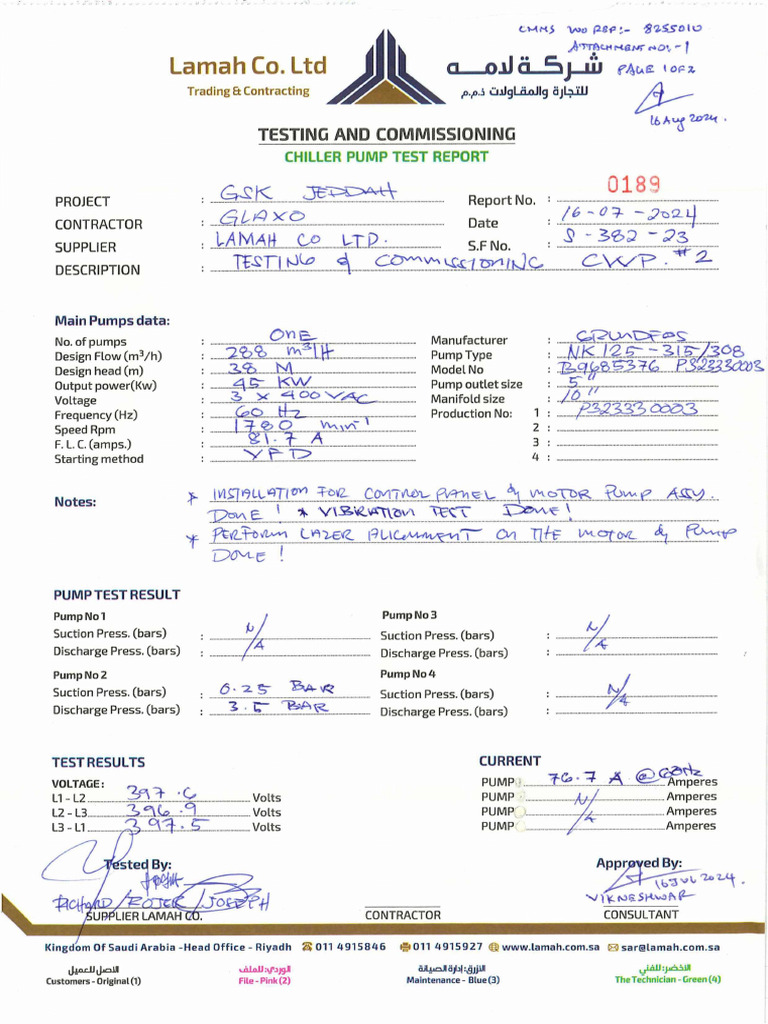 CMMS WO REF:- 8255010
ATTACHMENT NO:-1
PAGE 1 OF 2
16 Aug 2024.
Lamah Co. Ltd
Trading & Contracting
شركة لامه
للتجارة والمقاولات ذ.م.م
TESTING AND COMMISSIONING
CHILLER PUMP TEST REPORT
PROJECT : GSK JEDDAH
Report No. : 0189
CONTRACTOR : GLAXO
Date : 16-07-2024
SUPPLIER : LAMAH CO LTD.
S.F No. : S-382-23
DESCRIPTION : TESTING & COMMISSIONING CWP.#2
Main Pumps data:
No. of pumps : ONE
Manufacturer : GRUNDFOS
Design Flow (m³/h) : 288 m³/H
Pump Type : NK 125-315/308
Design head (m) : 38 M
Model No : B9685376 P323330003
Output power(Kw) : 45 KW
Pump outlet size : 5"
Voltage : 3 x 400 VAC
Manifold size : 10"
Frequency (Hz) : 60 Hz
Production No: 1 : P323330003
Speed Rpm : 1780 min⁻¹
2 :
F. L. C. (amps.) : 81.7 A
3 :
Starting method : VFD
4 :
Notes: * INSTALLATION FOR CONTROL PANEL & MOTOR PUMP ASSY.
DONE! * VIBRATION TEST DONE!
* PERFORM LAZER ALIGNMENT ON THE MOTOR & PUMP
DONE!
PUMP TEST RESULT
Pump No 1
Pump No 3
Suction Press. (bars) : N/A
Suction Press. (bars) : N/A
Discharge Press. (bars) :
Discharge Press. (bars) :
Pump No 2
Pump No 4
Suction Press. (bars) : 0.25 BAR
Suction Press. (bars) : N/A
Discharge Press. (bars) : 3.5 BAR
Discharge Press. (bars) :
TEST RESULTS
CURRENT
VOLTAGE :
PUMP 76.7 A @ 60Hz Amperes
L1 - L2 397.6 Volts
PUMP N/A Amperes
L2 - L3 396.9 Volts
PUMP Amperes
L3 - L1 397.5 Volts
PUMP Amperes
Tested By:
Approved By:
16 JUL 2024.
RICHARD/ROJER/JOSEPH
VIKNESHWAR
SUPPLIER LAMAH CO.
CONTRACTOR
CONSULTANT
Kingdom Of Saudi Arabia -Head Office - Riyadh 011 4915846 011 4915927 www.lamah.com.sa sar@lamah.com.sa
الاصل:للعميل
الوردي:للملف
الازرق:إدارة الصيانة
الأخضر:للفني
Customers - Original (1)
File - Pink (2)
Maintenance - Blue (3)
The Technician - Green (4)